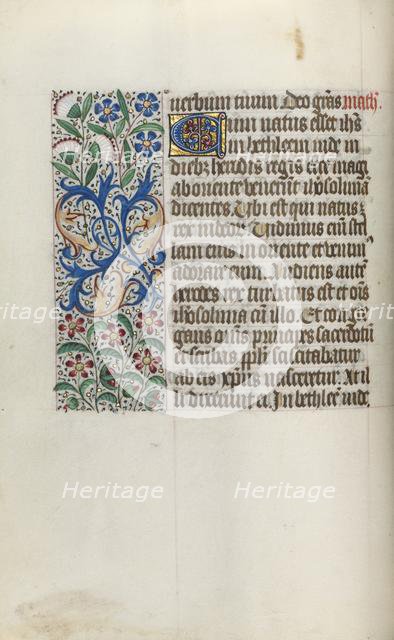 uerbum tuum Deo grãs math.
Cum natus esset ihs
in bethleem iude in
diebz herodis regis ecce magi
ab oriente uenerunt iherosolimã
dicentes. Vbi est qui natus ē
rex iudeoꝝ. Vidimus enī stel
lam eius in oriente et uenim'
adorare eum. Audiens autē
herodes rex turbatus est et oīs
iherosolima cū illo. Et congre
gans oēs principes sacerdotū
et scribas ppli sciscitabatur
ab eis xpūs nasceretur. At il
li dixerunt ei. In bethleē iude.
Heritage Heritage
Heritage Heritage Heritage
Heritage Heritage